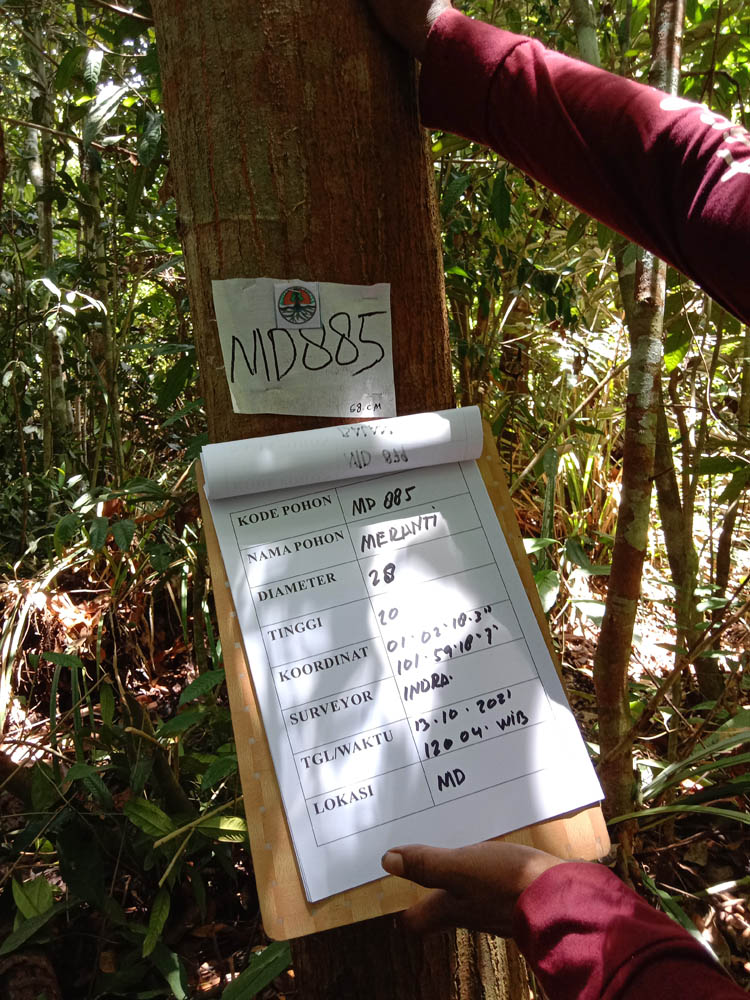 MD885
68.CM
KODE POHON MD 885
NAMA POHON MERANTI
DIAMETER 28
TINGGI 20
KOORDINAT 01.02.18.3"
101.59.18.7"
SURVEYOR INDRA.
TGL/WAKTU 13.10.2021
120 04. WIB
LOKASI MD